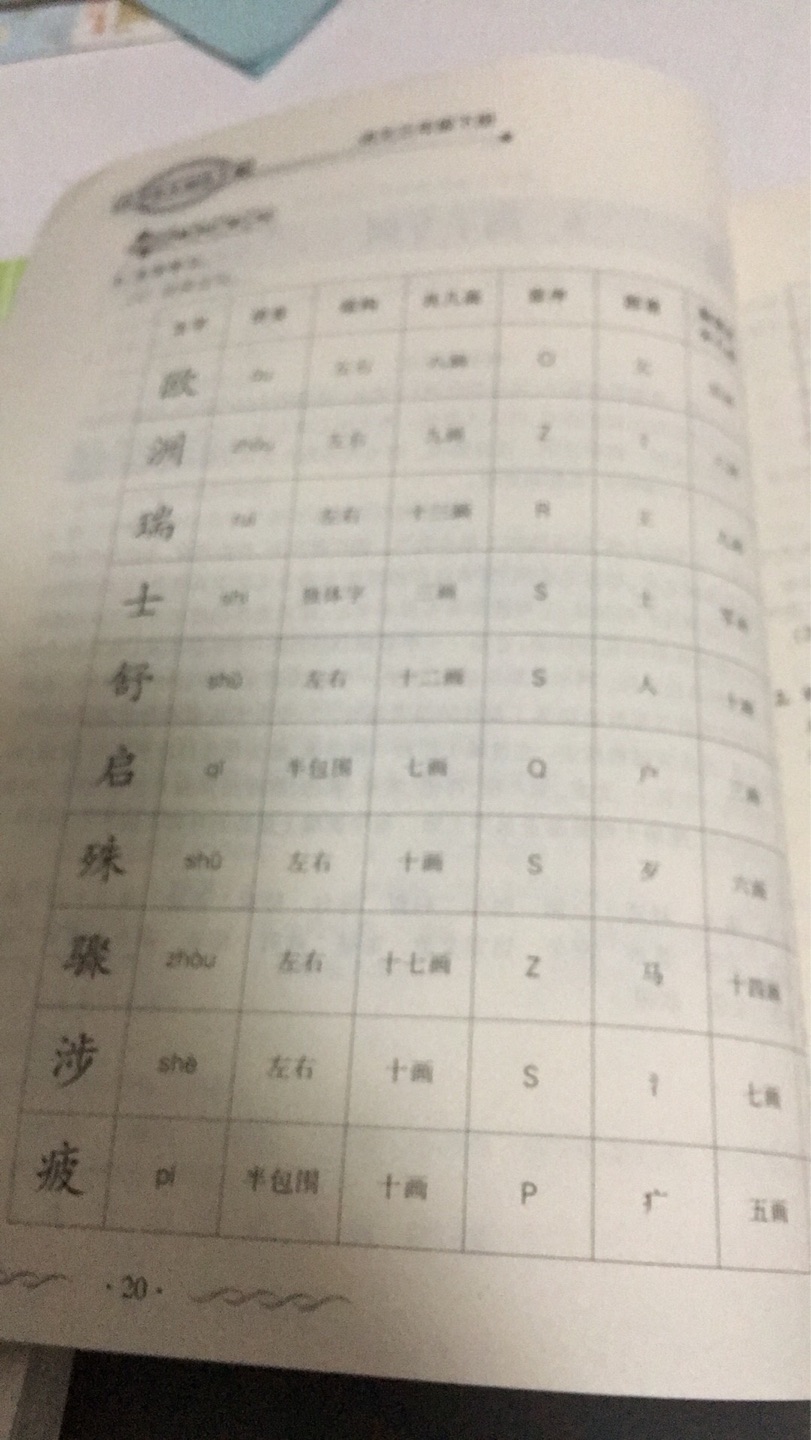 生字 拼音 结构 共几画 音序 部首
欧 ōu 左右 八画 O 欠
洲 zhōu 左右 九画 Z 氵
瑞 ruì 左右 十三画 R 王 九画
士 shì 独体字 三画 S 士 零画
舒 shū 左右 十二画 S 人 十画
启 qǐ 半包围 七画 Q 户 三画
殊 shū 左右 十画 S 歹 六画
骤 zhòu 左右 十七画 Z 马 十四画
涉 shè 左右 十画 S 氵 七画
疲 pí 半包围 十画 P 疒 五画
·20·